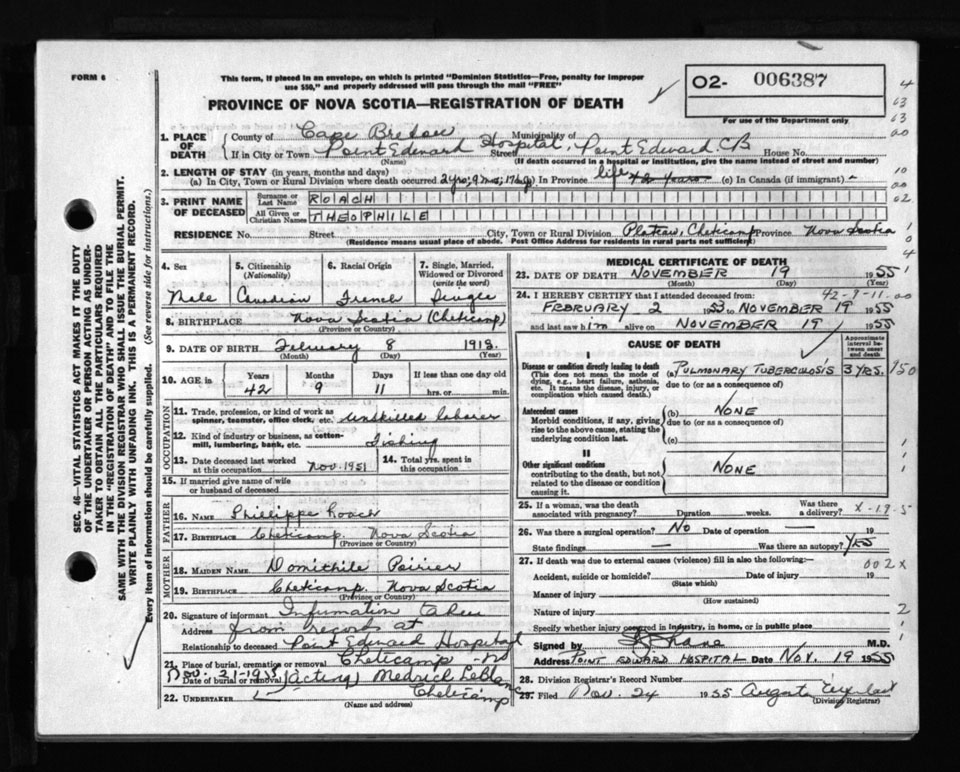 FORM 6
This form, if placed in an envelope, on which is printed "Dominion Statistics—Free, penalty for improper
use $50," and properly addressed will pass through the mail "FREE"
PROVINCE OF NOVA SCOTIA—REGISTRATION OF DEATH
02- 006387
For use of the Department only
1. PLACE OF DEATH
County of Cape Breton Municipality of
If in City or Town Point Edward Hospital, Street Point Edward CB House No.
(Name) (If death occurred in a hospital or institution, give the name instead of street and number)
2. LENGTH OF STAY (in years, months and days)
(a) In City, Town or Rural Division where death occurred 2 yrs; 9 mos; 17 days (b) In Province life 42 years (c) In Canada (if immigrant) -
3. PRINT NAME OF DECEASED
Surname or Last Name ROACH
All Given or Christian Names THEOPHILE
RESIDENCE No. Street City, Town or Rural Division Plateau, Cheticamp Province Nova Scotia
(Residence means usual place of abode. Post Office Address for residents in rural parts not sufficient)
4. Sex
Male
5. Citizenship (Nationality)
Canadian
6. Racial Origin
French
7. Single, Married, Widowed or Divorced (write the word)
Single
8. BIRTHPLACE Nova Scotia (Cheticamp)
(Province or Country)
9. DATE OF BIRTH February 8 1913.
(Month) (Day) (Year)
10. AGE in Years Months Days If less than one day old
42 9 11 hrs. or min.
OCCUPATION
11. Trade, profession, or kind of work as spinner, teamster, office clerk, etc. Unskilled laborer
12. Kind of industry or business, as cotton-mill, lumbering, bank, etc. Fishing
13. Date deceased last worked at this occupation Nov. 1951
14. Total yrs. spent in this occupation
15. If married give name of wife or husband of deceased
FATHER
16. NAME Phillippe Roach
17. BIRTHPLACE Cheticamp, Nova Scotia
(Province or Country)
MOTHER
18. MAIDEN NAME Domithile Poirier
19. BIRTHPLACE Cheticamp, Nova Scotia
(Province or Country)
20. Signature of informant Infumation taken
Address from records at
Relationship to deceased Point Edward Hospital
21. Place of burial, cremation or removal Cheticamp
Date of burial or removal Nov. 21-1955
22. UNDERTAKER (acting) Medrick LeBlanc
Cheticamp
(Name and address)
MEDICAL CERTIFICATE OF DEATH
23. DATE OF DEATH NOVEMBER 19 1955
(Month) (Day) (Year)
24. I HEREBY CERTIFY that I attended deceased from:
42-9-11
FEBRUARY 2 1953 TO NOVEMBER 19 1955
and last saw him alive on NOVEMBER 19 1955
CAUSE OF DEATH
Approximate interval between onset and death
I
Disease or condition directly leading to death
(This does not mean the mode of dying, e.g., heart failure, asthenia, etc. It means the disease, injury, or complication which caused death.)
(a) PULMONARY TUBERCULOSIS 3 YRS.
due to (or as a consequence of)
Antecedent causes
Morbid conditions, if any, giving rise to the above cause, stating the underlying condition last.
(b) NONE
due to (or as a consequence of)
(c)
II
Other significant conditions
contributing to the death, but not related to the disease or condition causing it.
NONE
25. If a woman, was the death associated with pregnancy? Duration weeks. Was there a delivery?
X-19-5
26. Was there a surgical operation? NO Date of operation — 19
State findings — Was there an autopsy? YES
27. If death was due to external causes (violence) fill in also the following:-
002X
Accident, suicide or homicide? Date of injury 19
(State which)
Manner of injury
(How sustained)
Nature of injury
Specify whether injury occurred in industry, in home, or in public place
Signed by M.D.
Address POINT EDWARD HOSPITAL Date NOV. 19 1955
28. Division Registrar's Record Number
29. Filed Nov. 24 1955
(Division Registrar)
SEC. 46—VITAL STATISTICS ACT MAKES IT THE DUTY
OF THE UNDERTAKER OR PERSON ACTING AS UNDER-
TAKER TO OBTAIN ALL THE PARTICULARS REQUIRED
IN THE "REGISTRATION OF DEATH" AND TO FILE THE
SAME WITH THE DIVISION REGISTRAR WHO SHALL ISSUE THE BURIAL PERMIT.
WRITE PLAINLY WITH UNFADING INK. THIS IS A PERMANENT RECORD.
Every item of information should be carefully supplied. (See reverse side for instructions.)